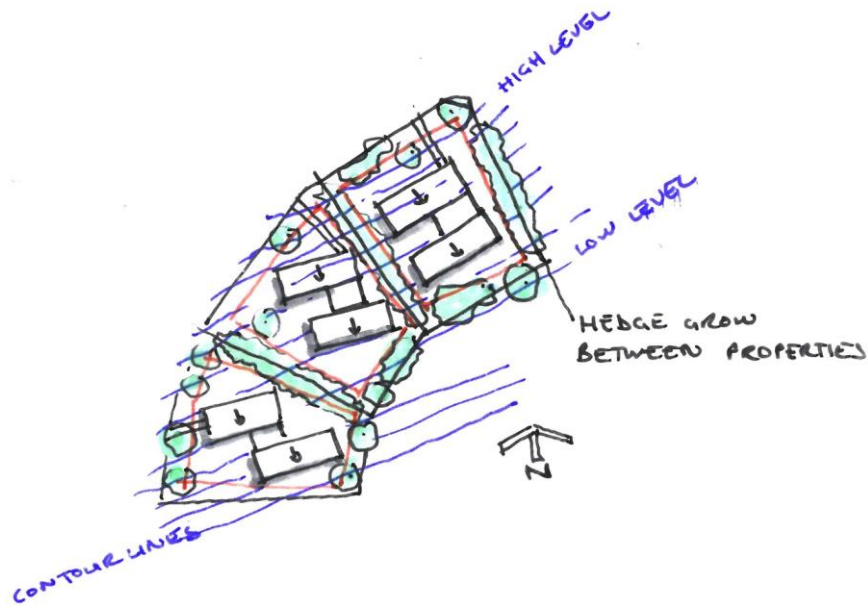 HIGH LEVEL
LOW LEVEL
HEDGE GROW
BETWEEN PROPERTIES
N
CONTOUR LINES